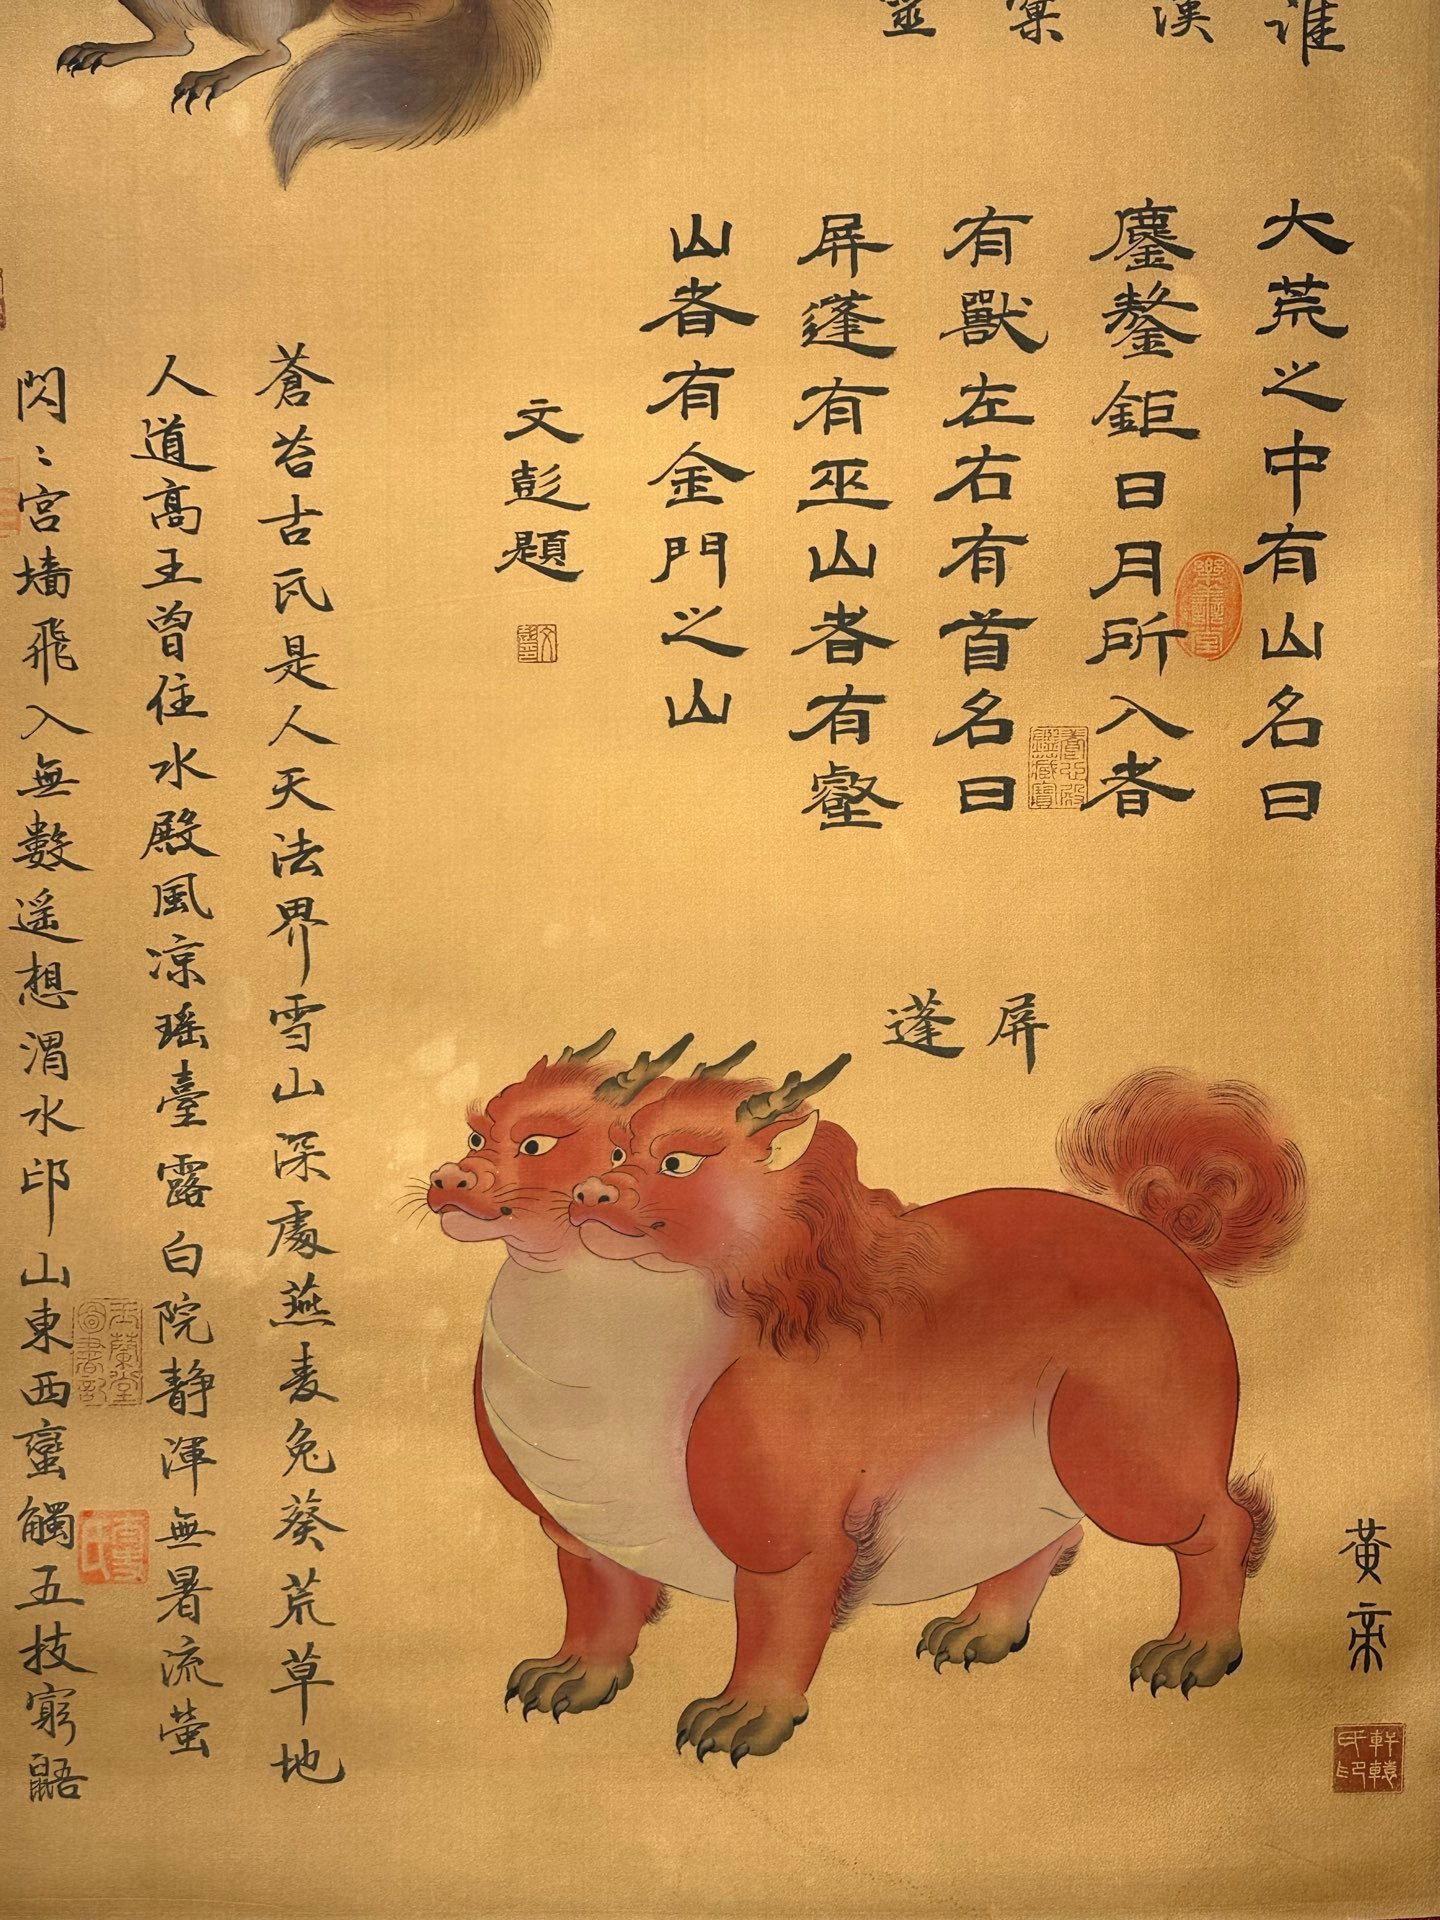 誰
漢
窠
大荒之中有山名曰
鏖鏊鉅日月所入者
有獸左右有首名曰
屏蓬有巫山者有壑
山者有金門之山
文彭題
屏蓬
蒼苔古瓦是人天法界雪山深處燕麦兔葵荒草地
人道高王曾住水殿風凉瑶臺露白院静渾無暑流螢
閃〻宮墻飛入無數遥想渭水邙山東西蠻觸五技窮鼯
黃帝
軒轅氏印
樂善堂
養心殿鑑藏寶
玉蘭堂圖書記